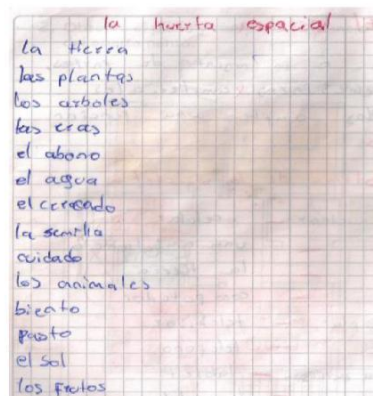 la huerta espacial
la tierra
las plantas
los arboles
las eras
el abono
el agua
el cercado
la semilla
cuidado
los animales
biento
pasto
el sol
los frutos